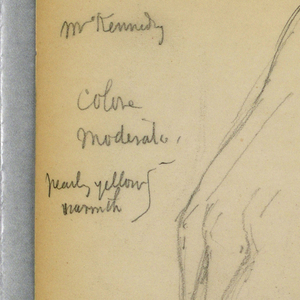 Mrs Kennedy
Colore
Moderato.
pearly yellow
warmth